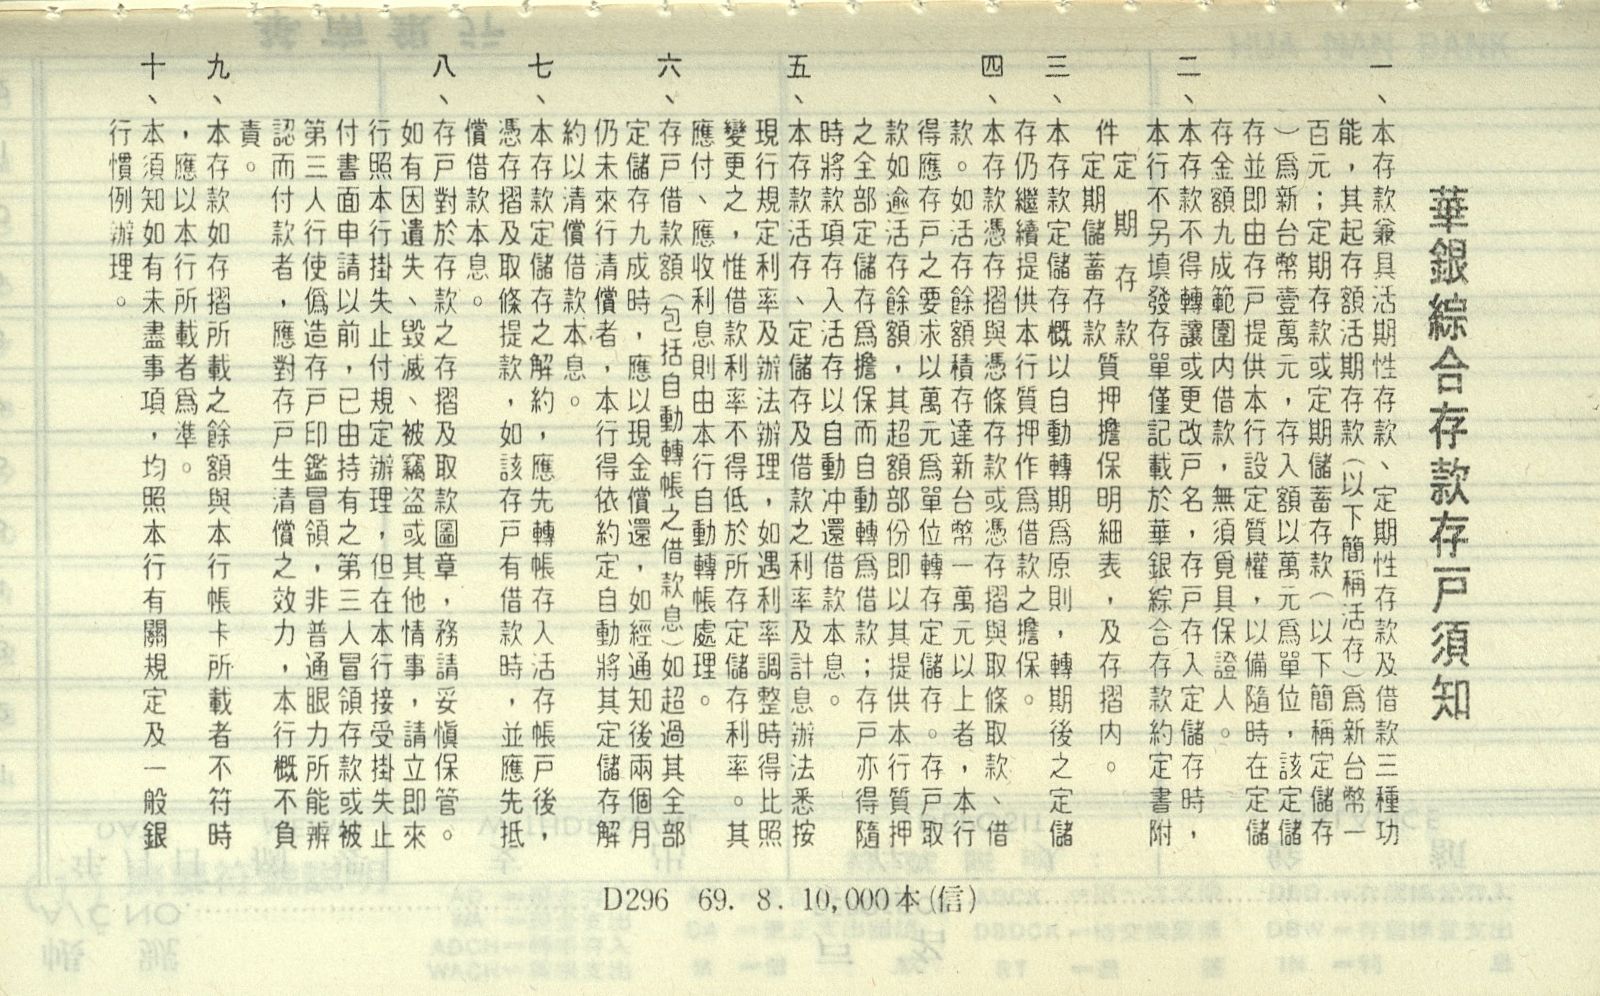 華銀綜合存款存戶須知
一、本存款兼具活期性存款、定期性存款及借款三種功
能，其起存額活期存款（以下簡稱活存）爲新台幣一
百元；定期存款或定期儲蓄存款（以下簡稱定儲存
）爲新台幣壹萬元，存入額以萬元爲單位，該定儲
存並即由存戶提供本行設定質權，以備隨時在定儲
存金額九成範圍內借款，無須覓具保證人。
二、本存款不得轉讓或更改戶名，存戶存入定儲存時，
本行不另填發存單僅記載於華銀綜合存款約定書附
件定期存款
定期儲蓄存款質押擔保明細表，及存摺內。
三、本存款定儲存概以自動轉期爲原則，轉期後之定儲
存仍繼續提供本行質押作爲借款之擔保。
四、本存款憑存摺與憑條存款或憑存摺與取條取款、借
款。如活存餘額積存達新台幣一萬元以上者，本行
得應存戶之要求以萬元爲單位轉存定儲存。存戶取
款如逾活存餘額，其超額部份即以其提供本行質押
之全部定儲存爲擔保而自動轉爲借款；存戶亦得隨
時將款項存入活存以自動冲還借款本息。
五、本存款活存、定儲存及借款之利率及計息辦法悉按
現行規定利率及辦法辦理，如遇利率調整時得比照
變更之，惟借款利率不得低於所存定儲存利率。其
應付、應收利息則由本行自動轉帳處理。
六、存戶借款額（包括自動轉帳之借款息）如超過其全部
定儲存九成時，應以現金償還，如經通知後兩個月
仍未來行清償者，本行得依約定自動將其定儲存解
約以清償借款本息。
七、本存款定儲存之解約，應先轉帳存入活存帳戶後，
憑存摺及取條提款，如該存戶有借款時，並應先抵
償借款本息。
八、存戶對於存款之存摺及取款圖章，務請妥愼保管。
如有因遺失、毀滅、被竊盜或其他情事，請立即來
行照本行掛失止付規定辦理，但在本行接受掛失止
付書面申請以前，已由持有之第三人冒領存款或被
第三人行使僞造存戶印鑑冒領，非普通眼力所能辨
認而付款者，應對存戶生清償之效力，本行概不負
責。
九、本存款如存摺所載之餘額與本行帳卡所載者不符時
，應以本行所載者爲準。
十、本須知如有未盡事項，均照本行有關規定及一般銀
行慣例辦理。
D296 69. 8. 10,000本(信)